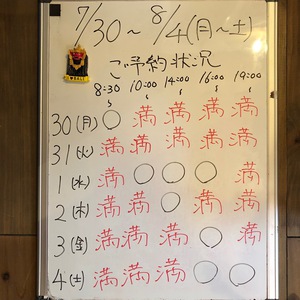 7/30～8/4(月～土)
ご予約状況
8:30～ 10:00～ 14:00～ 16:00～ 19:00～
30(月) ○ 満 満 満 満
31(火) 満 満 満 満 満
1(水) 満 ○ ○ ○ 満
2(木) 満 満 ○ 満 満
3(金) 満 満 満 ○ 満
4(土) 満 満 満 ○ ○